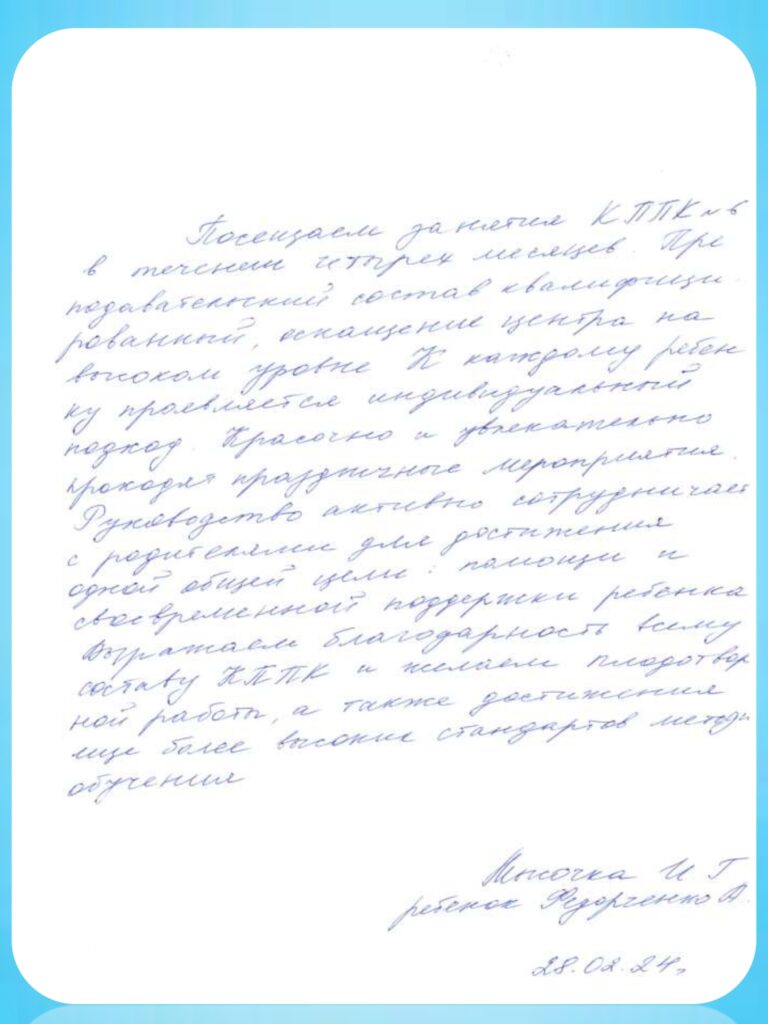 Посещаем занятия КППК №6
в течении чтырех месяцев. Пре
подавательский состав квалифици
рованный, оснащение центра на
высоком уровне К каждому ребен
ку проявляется индивидуальный
подход. Красочно и увлекательно
проходят праздничные мероприятия.
Руководство активно сотрудничает
с родителями для достижения
одной общей цели: помощи и
своевременной поддержки ребенка
Выражаем благодарность всему
составу КППК и желаем плодотвор
ной работы, а также достижения
еще более высоких стандартов
обучения
И Г
ребенок Федорченко А.
28.02.24г